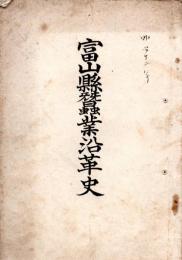 富山縣蠶業沿革史